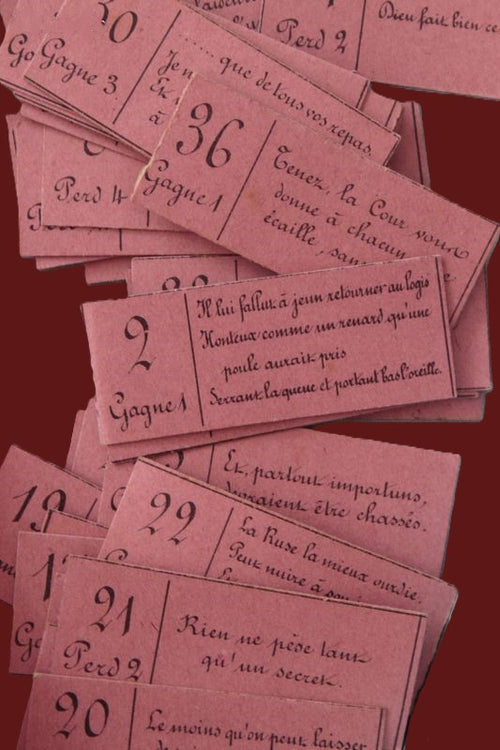 Dieu fait bien ce
Perd 2
30
Gagne 3
que de tous vos repas,
Je n
Et
à
Perd 4
36
Gagne 1
Tenez, la Cour vous
donne à chacun
écaille, san
2
Gagne 1
Il lui fallut à jeun retourner au logis
Honteux comme un renard qu'une
poule aurait pris
Serrant la queue et portant bas l'oreille.
Et, partout importuns,
devraient être chassés.
19
22
La Ruse la mieux ourdie,
Peut nuire à son
21
Perd 2
Rien ne pèse tant
qu'un secret.
20
Le moins qu'on peut laisser